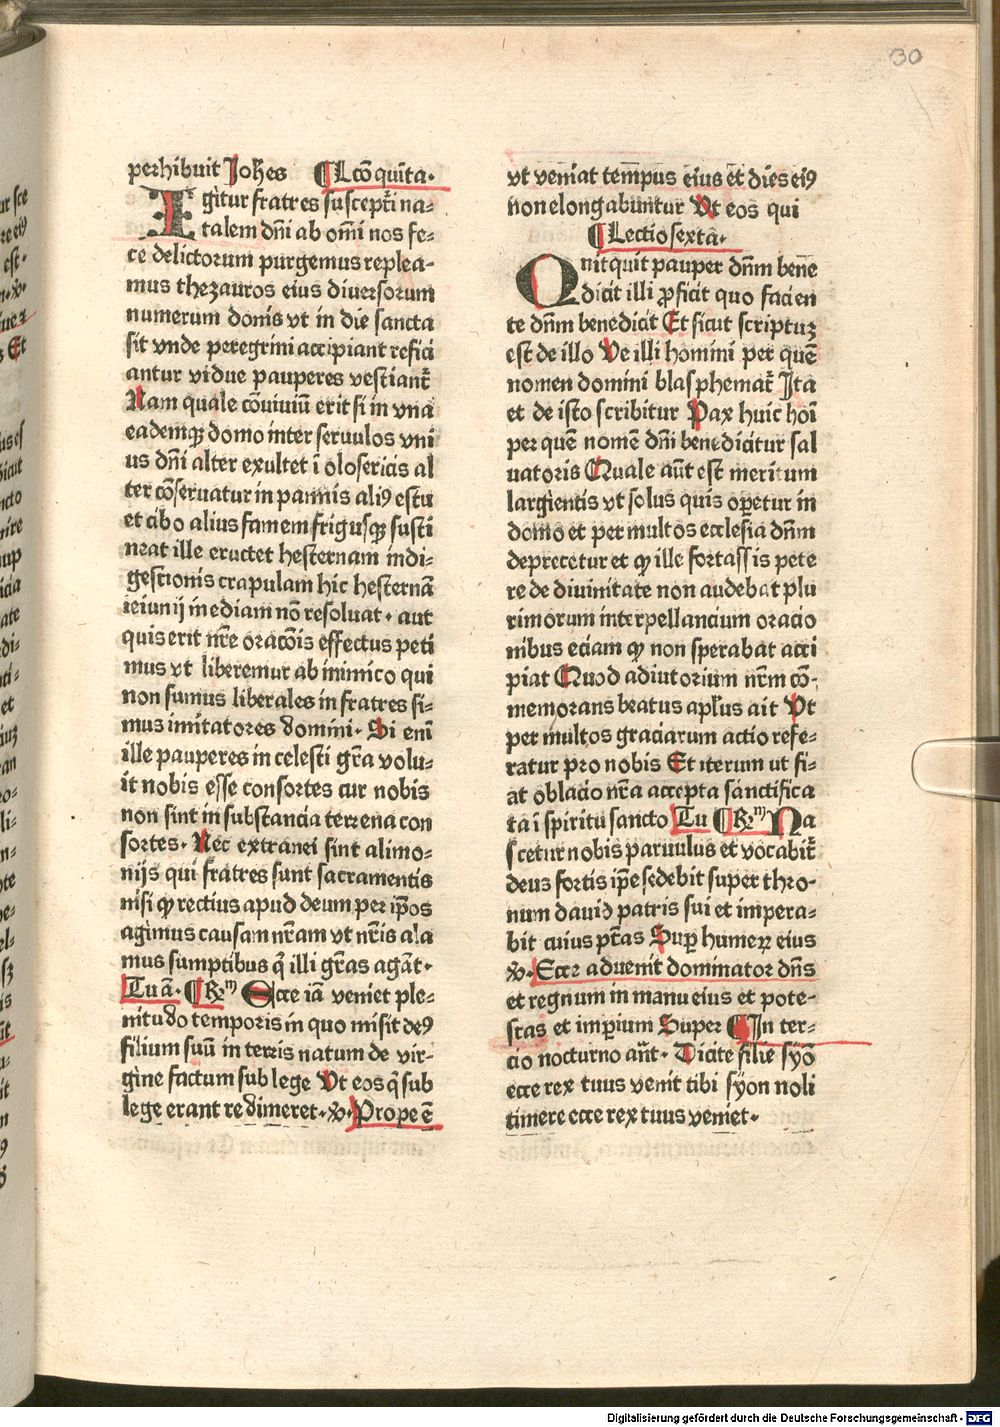 30
perhibuit Joh̄es ¶ Lcō quīta.
Igitur fratres suscepti̅ na⸗
talem dn̄i ab om̄i nos fe⸗
ce delictorum purgemus replea⸗
mus thezauros eius diuersorum
numerum donis vt in die sancta
sit vnde peregrini accipiant refici
antur vidue pauperes vestiant̄
Nam quale cōuiuiū erit si in vna
eademqꝫ domo inter seruulos vni
us dn̄i alter exultet ī olosericis al
ter cōseruatur in pannis aliꝰ estu
et cibo alius famem frigusqꝫ susti
neat ille eructet hesternam indi⸗
gestionis crapulam hic hesternā
ieiunij inediam nō resoluat. aut
quis erit nr̄e orac̄ois effectus peti
mus vt liberemur ab inimico qui
non sumus liberales in fratres si⸗
mus imitatores domini. Si eni̅
ille pauperes in celesti gr̄a volu⸗
it nobis esse consortes cur nobis
non sint in substancia terrena con
sortes. Nec extranei sint alimo⸗
nijs qui fratres sunt sacramentis
nisi qꝫ rectius apud deum per ip̄os
agimus causam nr̄am vt nr̄is ala
mus sumptibus q̄ illi gr̄as agāt.
Tu ā. ¶ Rꝫ ᵐ Ecce iā veniet ple⸗
nitudo temporis in quo misit deꝰ
filium suū in terris natum de vir⸗
gine factum sub lege Vt eos q̄ sub
lege erant redimeret. ℣. Prope ē
vt veniat tempus eius et dies eiꝰ
non elongabuntur Vt eos qui
¶ Lectio sexta.
Qnitquit pauper dn̄m bene
dicit illi ꝓficit quo facien
te dn̄m benedicit Et sicut scriptuꝫ
est de illo Ve illi homini per quē
nomen domini blasphemat̄ Ita
et de isto scribitur Pax huic hoi̅
per quē nomē dn̄i benedicitur sal
uatoris Quale aūt est meritum
largientis vt solus quis oꝑetur in
domo et per multos ecclesia dn̄m
deprecetur et qꝫ ille fortassis pete
re de diuinitate non audebat plu
rimorum interpellancium oracio
nibus eciam qꝫ non sperabat acci
piat Quod adiutorium nr̄m cō⸗
memorans beatus apl̄us ait Vt
per multos graciarum actio refe⸗
ratur pro nobis Et iterum ut fi⸗
at oblacio nr̄a accepta sanctifica
ta ī spiritu sancto Tu ¶ Rꝫ ᵐ Na
scetur nobis paruulus et vocabit̄
deus fortis ip̄e sedebit super thro⸗
num dauid patris sui et impera⸗
bit cuius pt̄as Suꝑ humeꝝ eius
℣. Ecce aduenit dominator dn̄s
et regnum in manu eius et pote⸗
stas et imꝑium Super ¶ In ter⸗
cio nocturno an̄t. Dicite filie syō
ecce rex tuus venit tibi syon noli
timere ecce rex tuus veniet.
Digitalisierung gefördert durch die Deutsche Forschungsgemeinschaft - DFG